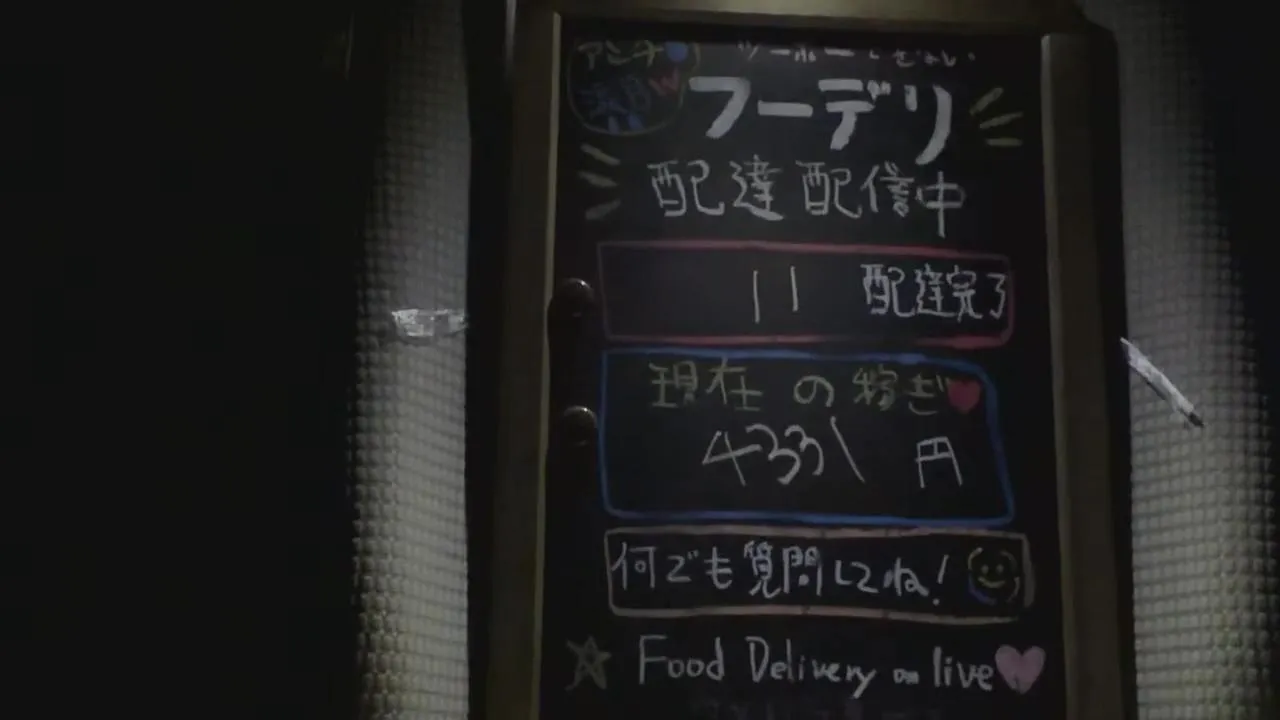 アンチ
フーデリ
配達配信中
11 配達完了
現在の稼ぎ
4331 円
何でも質問してね!
Food Delivery on live